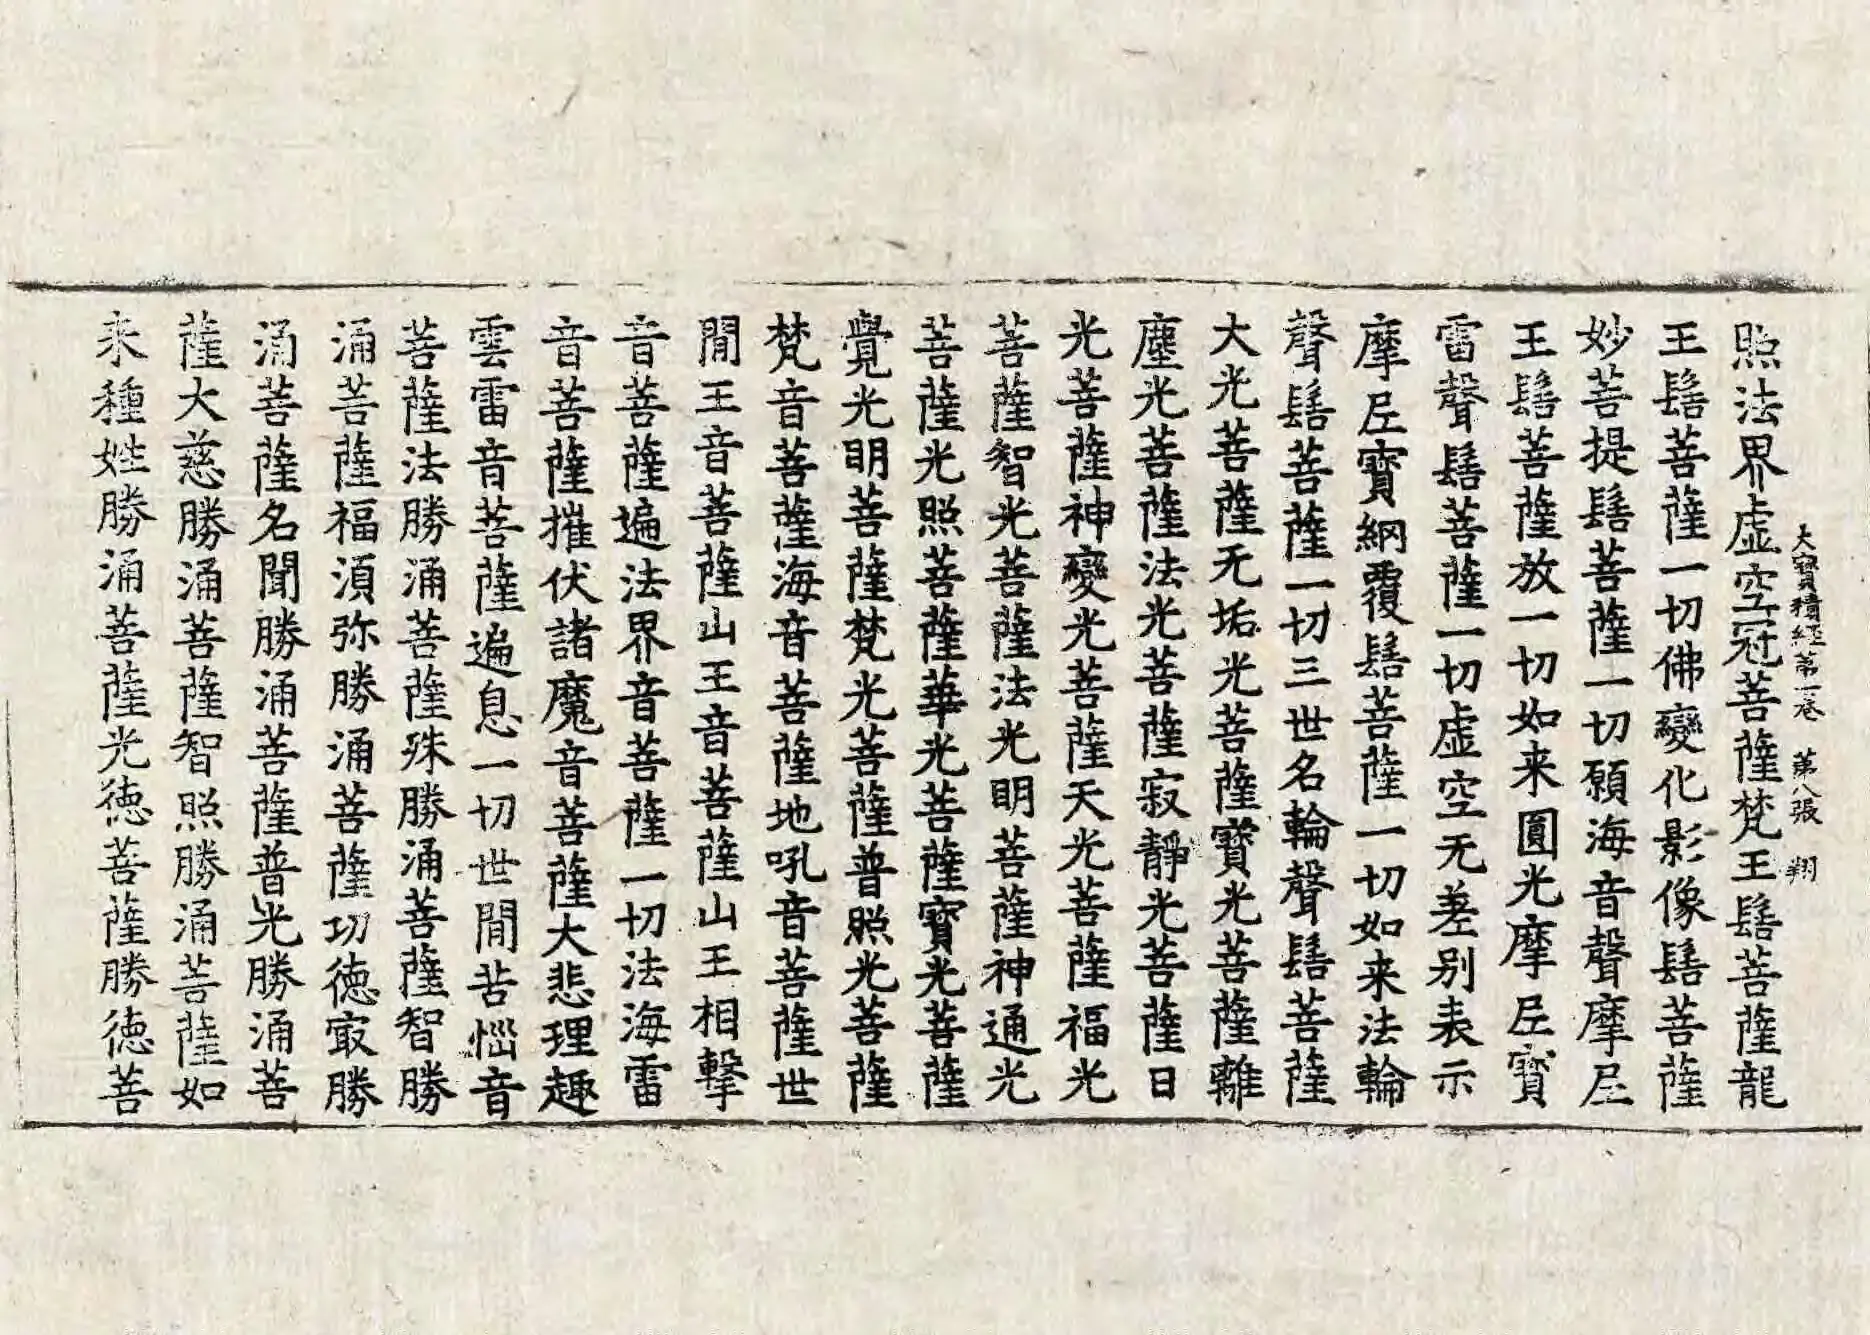 照法界虛空冠菩薩梵王髻菩薩龍
大寶積經第一卷　第八張　翔
王髻菩薩一切佛變化影像髻菩薩
妙菩提髻菩薩一切願海音聲摩尼
王髻菩薩放一切如来圓光摩尼寶
雷聲髻菩薩一切虛空无差别表示
摩尼寶網覆髻菩薩一切如来法輪
聲髻菩薩一切三世名輪聲髻菩薩
大光菩薩无垢光菩薩寶光菩薩離
塵光菩薩法光菩薩寂靜光菩薩日
光菩薩神變光菩薩天光菩薩福光
菩薩智光菩薩法光明菩薩神通光
菩薩光照菩薩華光菩薩寶光菩薩
覺光明菩薩梵光菩薩普照光菩薩
梵音菩薩海音菩薩地吼音菩薩世
閒王音菩薩山王音菩薩山王相擊
音菩薩遍法界音菩薩一切法海雷
音菩薩摧伏諸魔音菩薩大悲理趣
雲雷音菩薩遍息一切世閒苦惱音
菩薩法勝涌菩薩殊勝涌菩薩智勝
涌菩薩福湏弥勝涌菩薩功徳㝡勝
涌菩薩名聞勝涌菩薩普光勝涌菩
薩大慈勝涌菩薩智照勝涌菩薩如
来種姓勝涌菩薩光徳菩薩勝徳菩